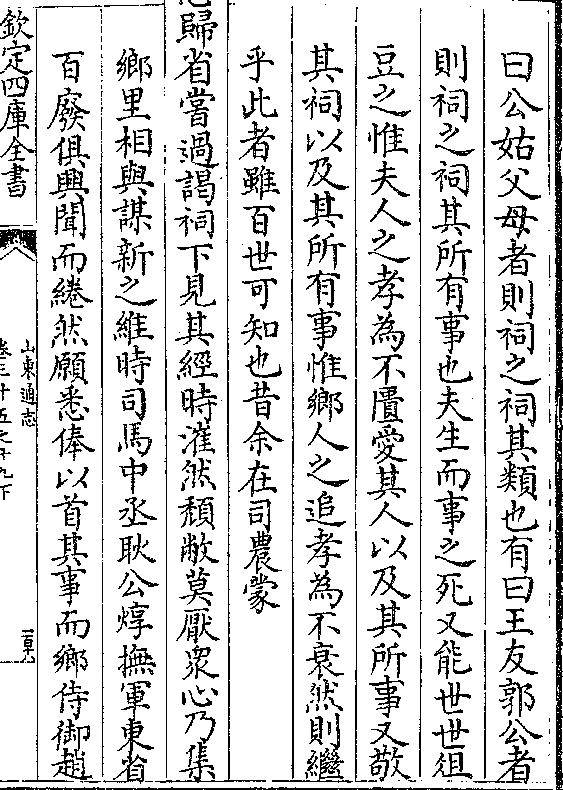 曰公姑父母者則祠之祠其類也有曰王友郭公者
則祠之祠其所有事也夫生而事之死又能世世俎
豆之惟夫人之孝為不匱愛其人以及其所事又敬
其祠以及其所有事惟鄉人之追孝為不衰然則繼
乎此者雖百世可知也昔余在司農蒙
恩歸省嘗過謁祠下見其經時漼然頽敝莫厭衆心乃集
鄉里相與謀新之維時司馬中丞耿公焞撫軍東省
百廢俱興聞而綣然願悉俸以首其事而鄉侍御趙
欽定四庫全書
山東通志
卷三十五之十九下